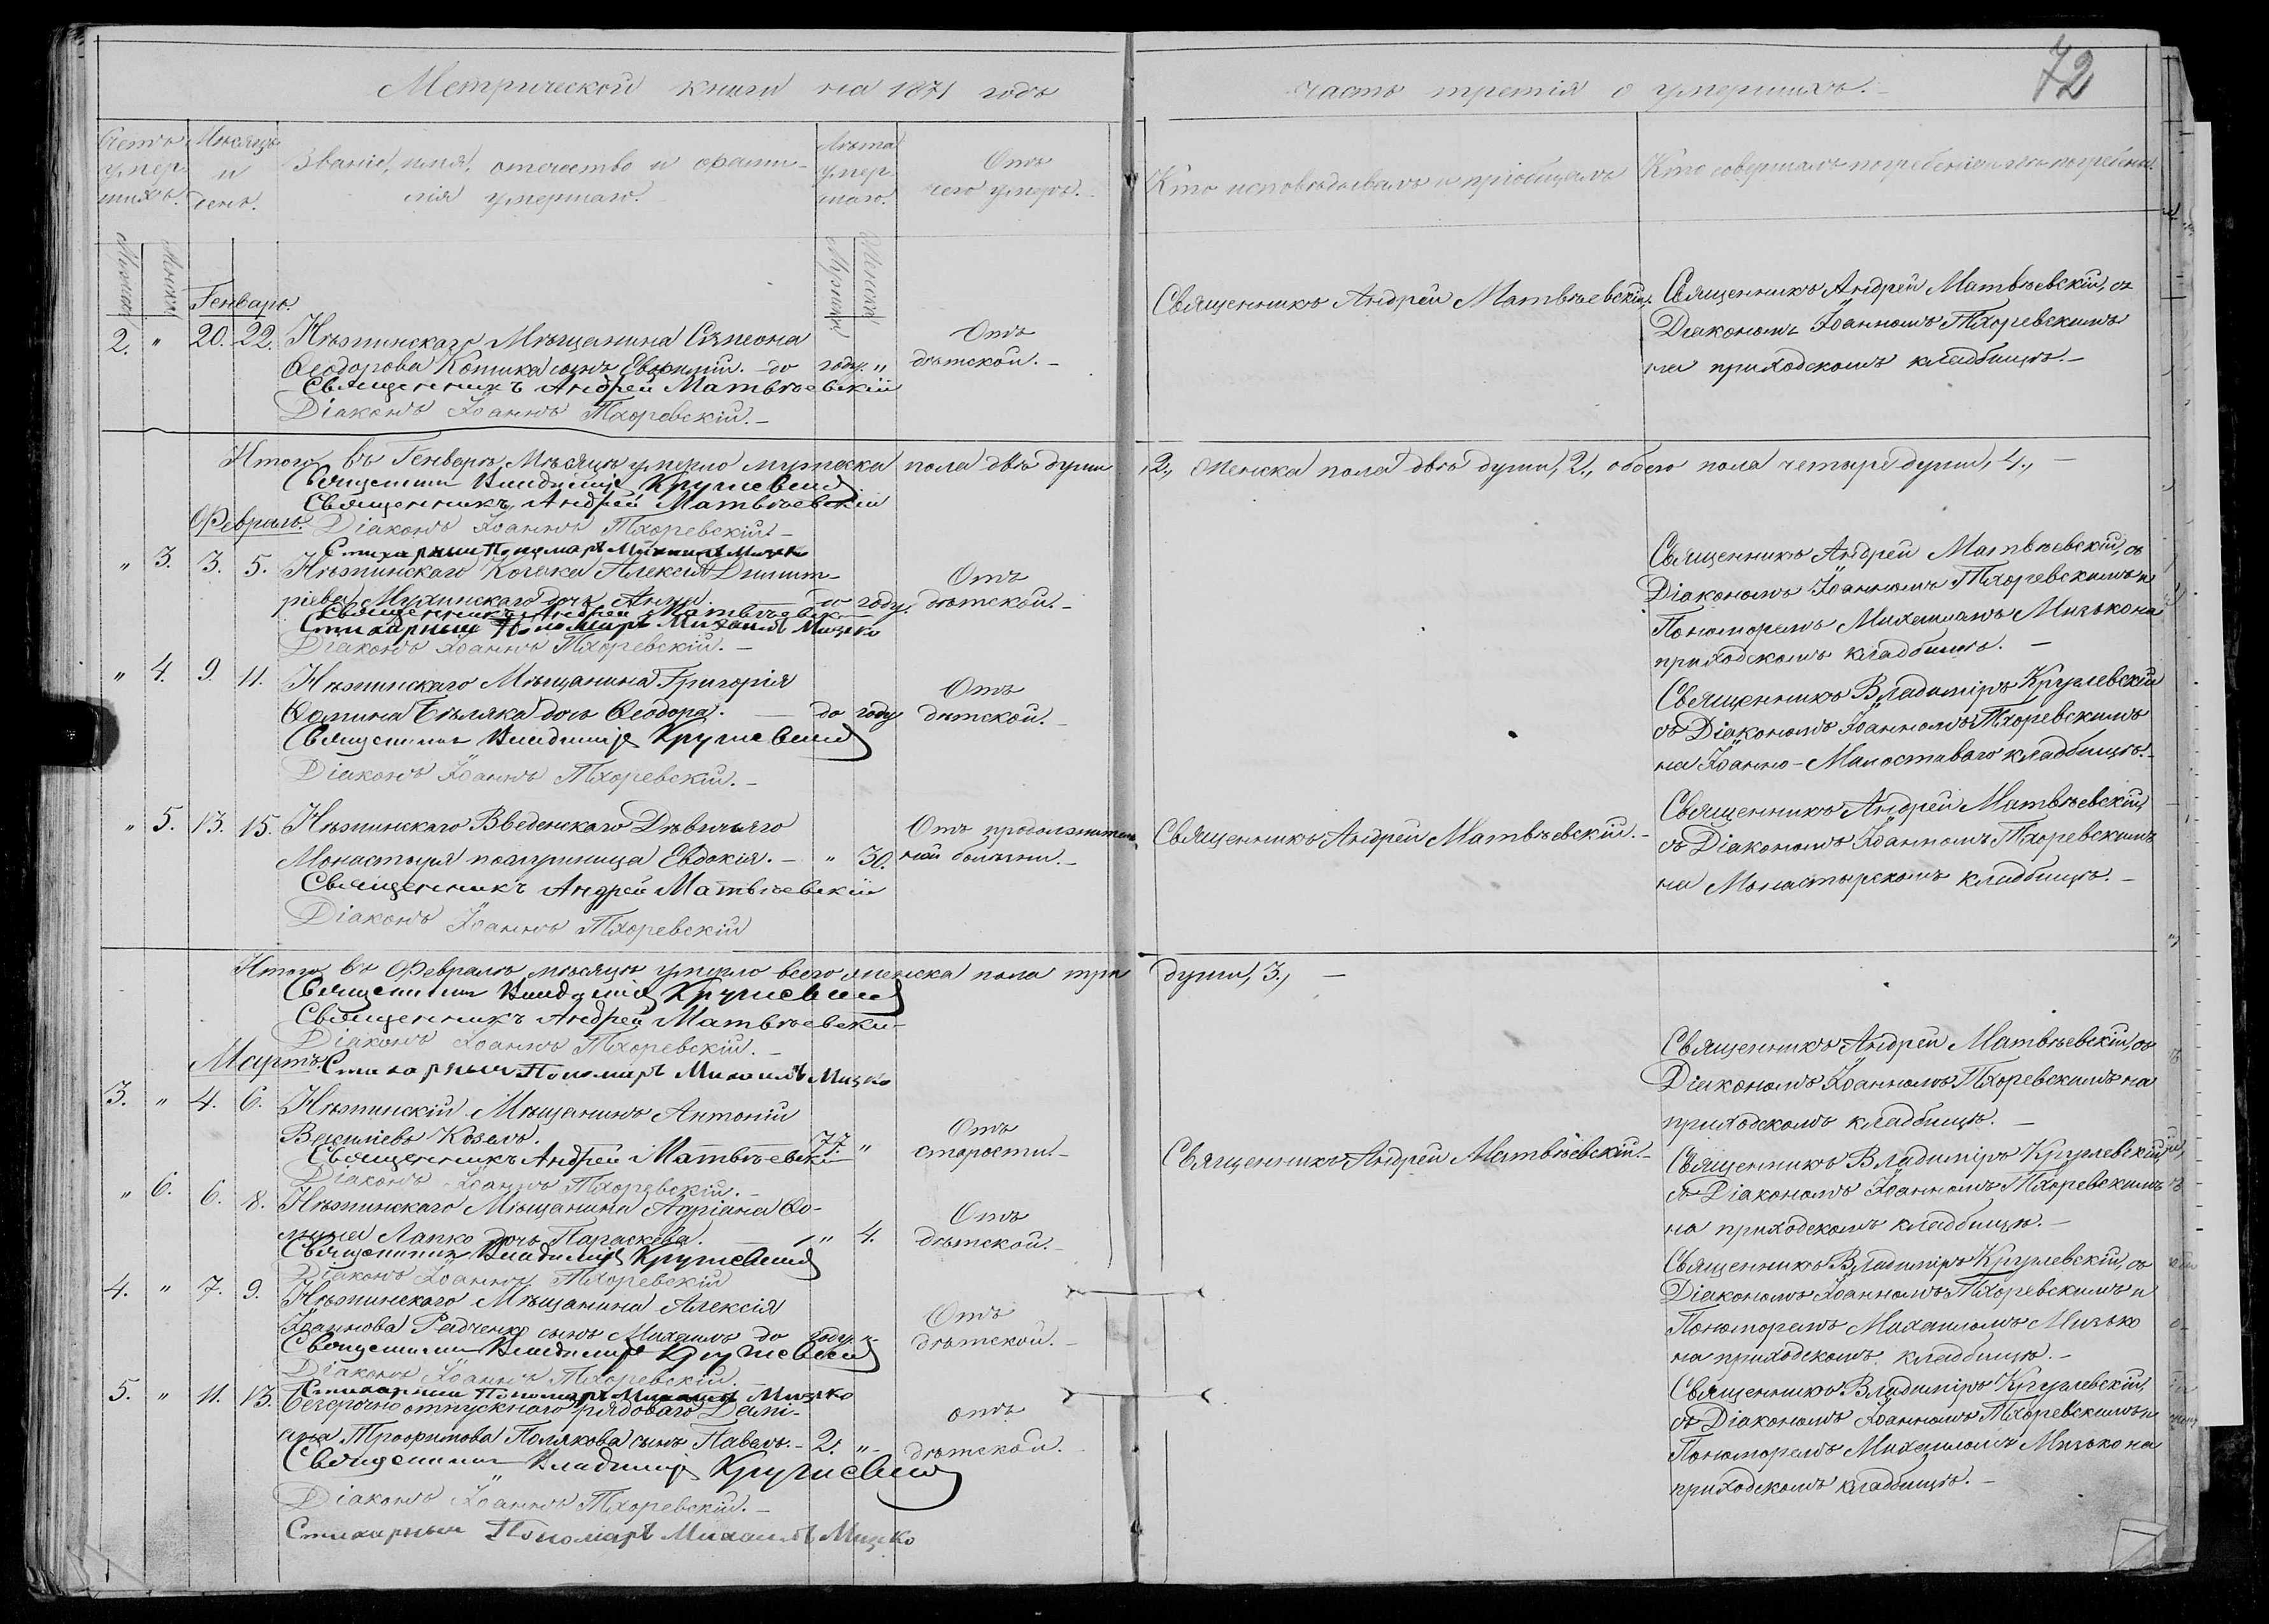 Метрической книги на 1871 годъ
часть третія о умершихъ.
72
Счетъ умер шихъ.
Мѣсяцъ и день.
Званіе, имя, отечество и фами-
лія умершаго.
Лѣта умер шаго.
Отъ
чего умеръ.
Кто исповѣдывалъ и пріобщалъ
Кто совершалъ погребеніе и гдѣ погребены.
Мужска Женска
Мужска Женска
Генварь.
2. " 20. 22. Нѣжинскаго Мѣщанина Сѵмеона
Ѳеодорова Котика сынъ Евфимій. - до году. "
Отъ
дѣтской. -
Священникъ Андрей Матвѣевскій
Діаконъ Іоаннъ Тхоревскій. -
Священникъ Андрей Матвѣевскій.
Священникъ Андрей Матвѣевскій, съ
Діакономъ Іоанномъ Тхоревскимъ
на приходскомъ кладбищѣ. -
Итого въ Генварѣ Мѣсяцѣ умерло мужеска пола двѣ души 2., женска пола двѣ души, 2., обоего пола четыре души, 4., -
Священникъ Владиміръ Круглевскій
Священникъ Андрей Матвѣевскій
Діаконъ Іоаннъ Тхоревскій -
Стихарный Пономарь Михаилъ Мизько
Февраль.
" 3. 3. 5. Нѣжинскаго Козака Алексія Димит-
ріева Мухинскаго дочь Анна. - до году.
Отъ
дѣтской. -
Священникъ Андрей Матвѣевскій
Стихарный Пономарь Михаилъ Мизько
Діаконъ Іоаннъ Тхоревскій. -
Священникъ Андрей Матвѣевскій, съ
Діакономъ Іоанномъ Тхоревскимъ и
Пономоремъ Михаиломъ Мизько на
приходскомъ кладбищѣ. -
" 4. 9. 11. Нѣжинскаго Мѣщанина Григорія
Ѳомина Бѣляка дочь Ѳеодора. - до году
Отъ
дѣтской. -
Священникъ Владиміръ Круглевскій
Діаконъ Іоаннъ Тхоревскій. -
Священникъ Владиміръ Круглевскій
съ Діакономъ Іоанномъ Тхоревскимъ
на Іоанно-Милостиваго кладбищѣ. -
" 5. 13. 15. Нѣжинскаго Введенскаго Дѣвичьяго
Монастыря послушница Евдокія. - " 30.
Отъ продолжитель
ной болѣзни. -
Священникъ Андрей Матвѣевскій
Діаконъ Іоаннъ Тхоревскій
Священникъ Андрей Матвѣевскій. -
Священникъ Андрей Матвѣевскій,
съ Діакономъ Іоанномъ Тхоревскимъ
на Монастырскомъ кладбищѣ. -
Итого въ Февралѣ мѣсяцѣ умерло всего женска пола три души, 3., -
Священникъ Владиміръ Круглевскій
Священникъ Андрей Матвѣевскій
Діаконъ Іоаннъ Тхоревскій. -
Мартъ. Стихарный Пономарь Михаилъ Мизько
3. " 4. 6. Нѣжинскій Мѣщанинъ Антоній
Василіевъ Козелъ. 77. "
Отъ
старости. -
Священникъ Андрей Матвѣевскій
Діаконъ Іоаннъ Тхоревскій. -
Священникъ Андрей Матвѣевскій. -
Священникъ Андрей Матвѣевскій, съ
Діакономъ Іоанномъ Тхоревскимъ на
приходскомъ кладбищѣ. -
" 6. 6. 8. Нѣжинскаго Мѣщанина Адріана Ѳо-
мина Лапко дочь Параскева. - " 4.
Отъ
дѣтской. -
Священникъ Владиміръ Круглевскій
Діаконъ Іоаннъ Тхоревскій
Священникъ Владиміръ Круглевскій,
съ Діакономъ Іоанномъ Тхоревскимъ
на приходскомъ кладбищѣ. -
4. " 7. 9. Нѣжинскаго Мѣщанина Алексія
Іоаннова Радченко сынъ Михаилъ до году. "
Отъ
дѣтской. -
Священникъ Владиміръ Круглевскій
Діаконъ Іоаннъ Тхоревскій.
Стихарный Пономарь Михаилъ Мизько
Священникъ Владиміръ Круглевскій, съ
Діакономъ Іоанномъ Тхоревскимъ и
Пономоремъ Михаиломъ Мизько
на приходскомъ кладбищѣ. -
5. " 11. 13. Безсрочно отпускнаго рядоваго Дамі-
ана Трофимова Полякова сынъ Павелъ. - 2. "
отъ
дѣтской.
Священникъ Владиміръ Круглевскій
Діаконъ Іоаннъ Тхоревскій. -
Стихарный Пономарь Михаилъ Мизько
Священникъ Владиміръ Круглевскій,
съ Діакономъ Іоанномъ Тхоревскимъ и
Пономоремъ Михаиломъ Мизько на
приходскомъ кладбищѣ. -